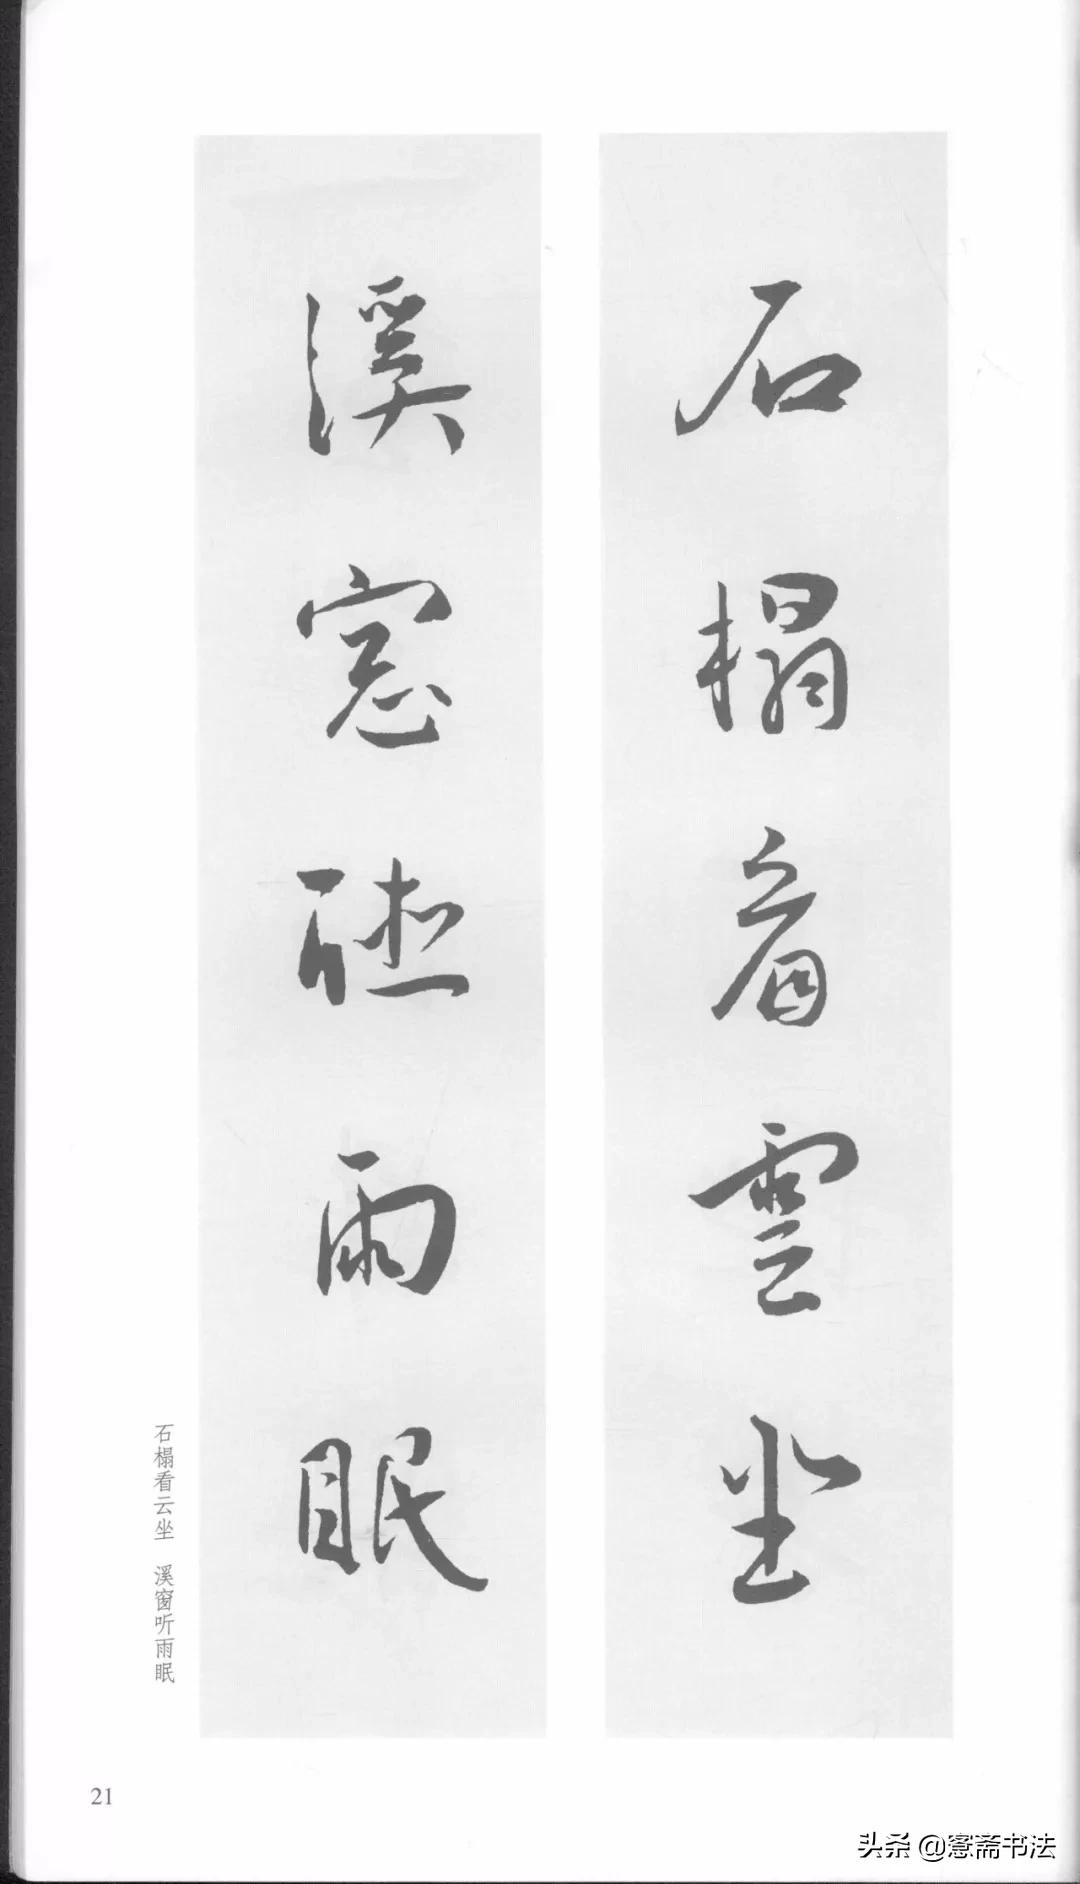 石榻看雲坐
溪窓聽雨眠
石榻看云坐 溪窗听雨眠
21
头杀@愙斋书法